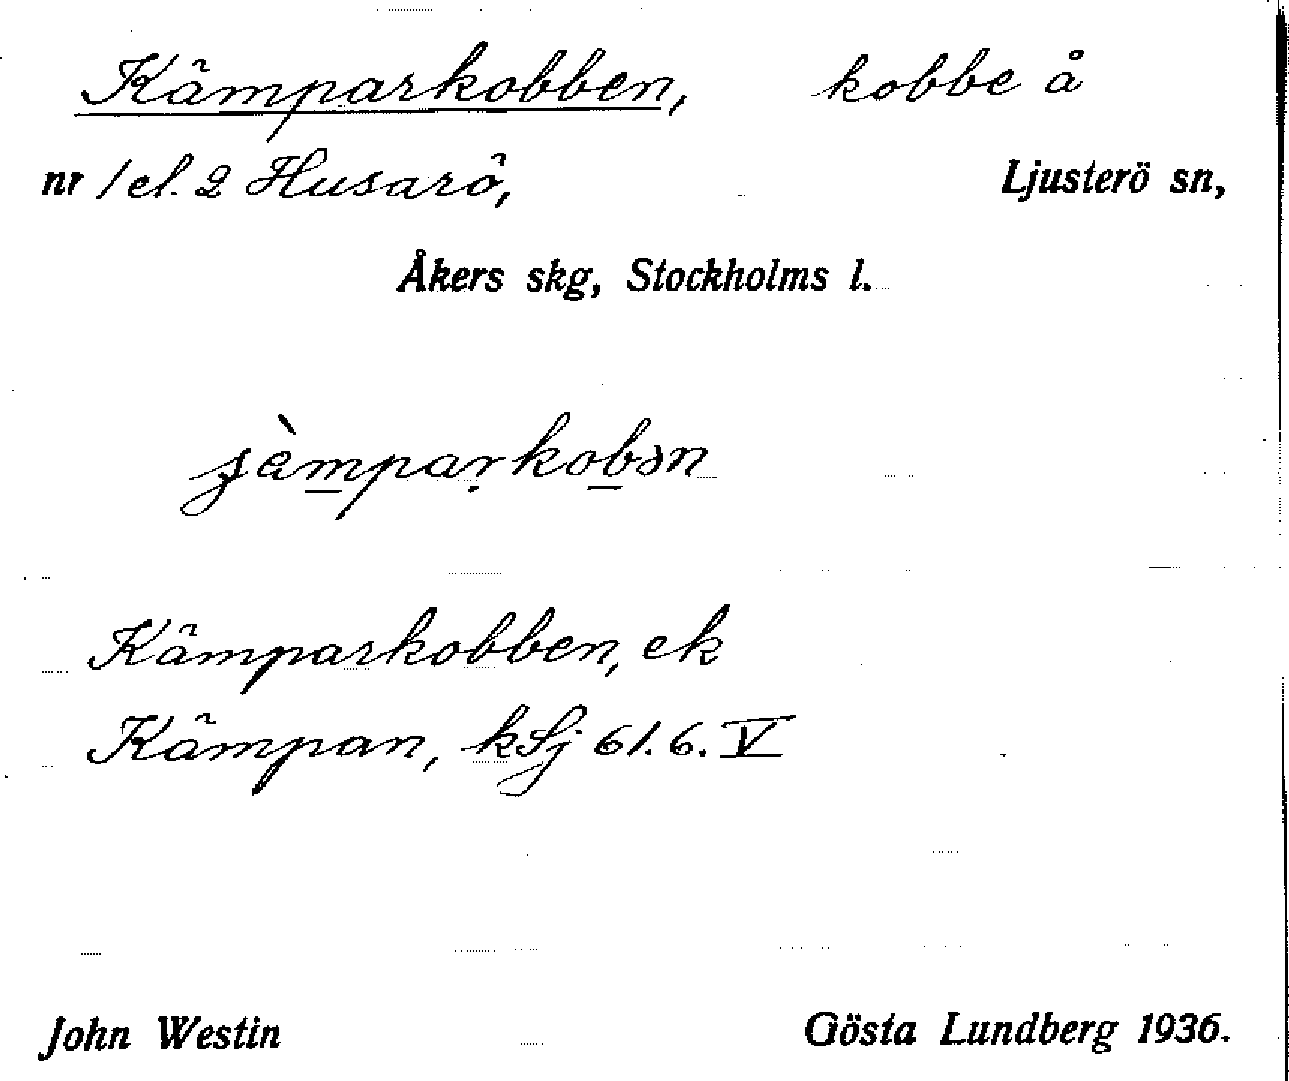 Kämparkobben, kobbe å
nr 1 el. 2 Husarö, Ljusterö sn,
Åkers skg, Stockholms l.
Kämparkobben, ek
Kämpan, kSj 61.6.V
John Westin Gösta Lundberg 1936.